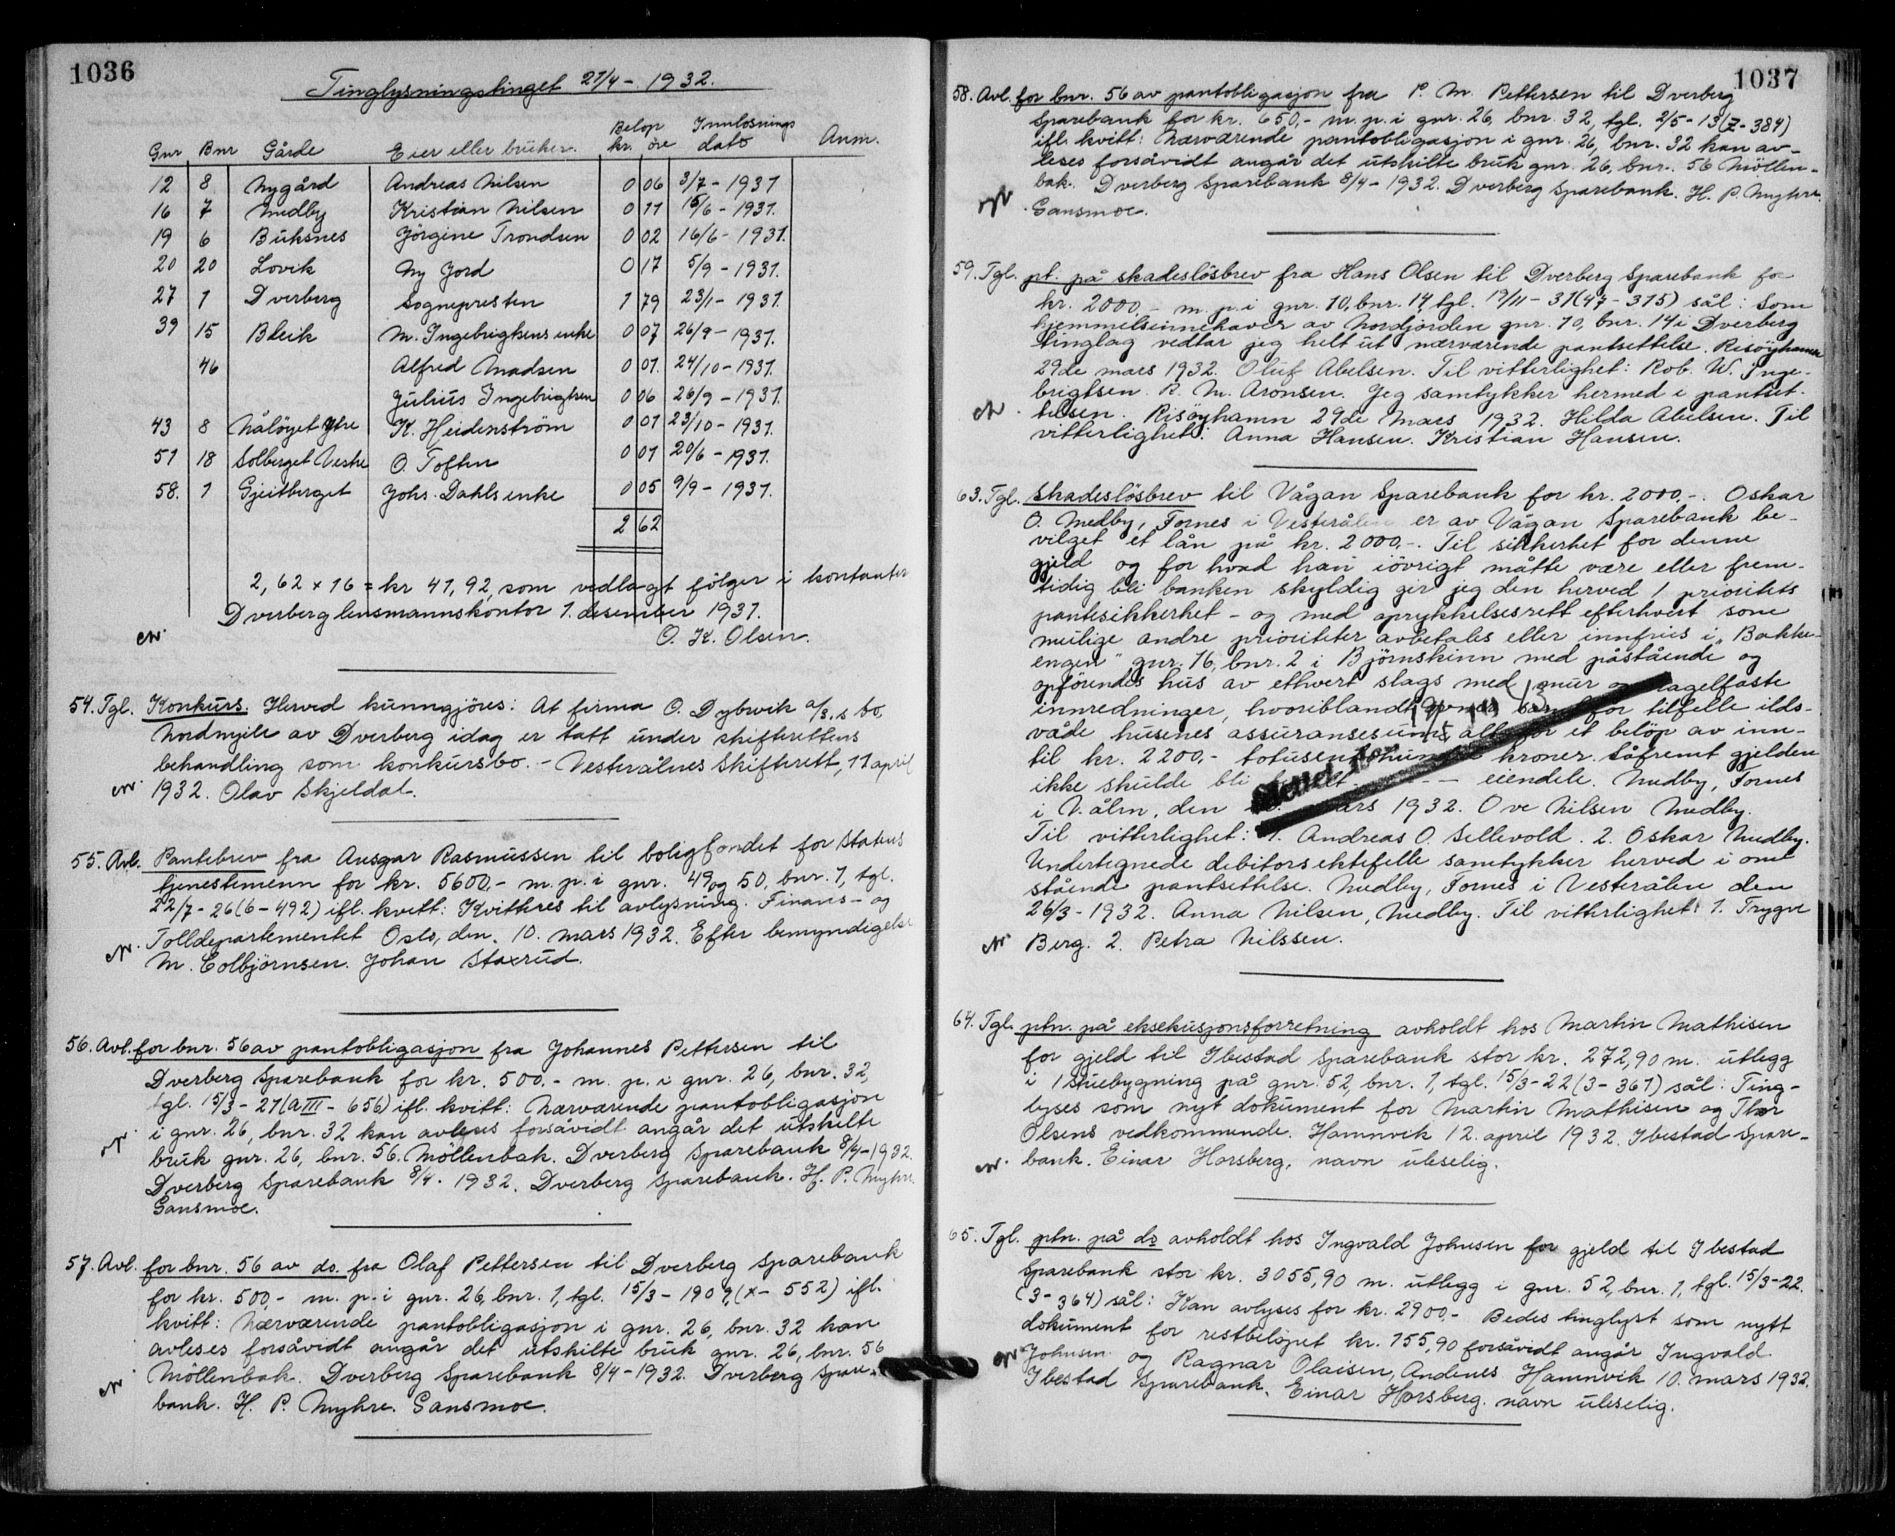 1036
Tinglysningstinget 27/4 - 1932.
Gnr Bnr Gårde Eier eller bruker. Beløp kr. øre Innløsnings dato Anm.
12 8 Nygård Andreas Nilsen 0 06 3/7 - 1931
16 7 Medby Kristian Nilsen 0 11 15/6 - 1931.
19 6 Buksnes Jörgine Trondsen 0 02 16/6 - 1931.
20 20 Lovik Ny Jord 0 17 5/9 - 1931.
27 1 Dverberg Sognepresten 1 79 23/1 - 1931.
39 15 Bleik M. Ingebrigtsens enke 0 07 26/9 - 1931.
46 Alfred Madsen 0 01. 24/10 - 1931.
Julius Ingebrigtsen 0 06 26/9 - 1931.
43 8 Nålöyet Ytre K. Heidenström 0 01 23/10 - 1931.
51 18 Solberget Vestre O. Toften 0 01 20/6 - 1931.
58. 1 Gjeitberget Johs. Dahls enke 0 05 9/9 - 1931.
2 62
2,62 x 16 = kr 41,92, som vedlagt fölger i kontanter
Dverberg lensmannskontor 1. desember 1931.
O. K. Olsen.
54. Tgl. Konkurs. Herved kunngjöres: At firma O. Dybwik a/s.s bo,
Nordmjele av Dverberg idag er tatt under skifterettens
behandling som konkursbo. - Vesterålens Skifterett, 11 april
1932. Olav Skjeldal.
55. Avl. Pantebrev fra Ansgar Rasmussen til boligfondet for Statens
tjenestemenn for kr. 5600,- m. p. i gnr. 49 og 50, bnr. 1, tgl.
22/7 - 26 (6 - 492) ifl. kvitt: Kvitteres til avlysning. Finans- og
Tolldepartementet Oslo, den. 10. mars 1932. Efter bemyndigelse
M. Colbjörnsen. Johan Staxrud.
56. Avl. for bnr. 56 av pantobligasjon fra Johannes Pettersen til
Dverberg Sparebank for kr. 500.- m. p. i gnr. 26, bnr. 32,
tgl. 15/3 - 21 (A III - 656) ifl. kvitt: Nærværende pantobligasjon
i gnr. 26, bnr. 32 kan avleses forsåvidt angår det utskilte
bruk gnr. 26, bnr. 56. Möllenbak. Dverberg Sparebank 8/4 - 1932.
Dverberg Sparebank 8/4. 1932. Dverberg Sparebank. H. P. Myhre.
Gansmoe.
57. Avl. for bnr. 56 av do. fra Olaf Pettersen til Dverberg Sparebank
for kr. 500,- m. p. i gnr. 26, bnr. 1, tgl. 15/3 - 1909, (X - 552) ifl.
kvitt: Nærværende pantobligasjon i gnr. 26, bnr. 32 kan
avleses forsåvidt angår det utskilte bruk gnr. 26, bnr. 56
Möllenbak. Dverberg Sparebank 8/4 - 1932. Dverberg Spare-
bank. H. P. Myhre. Gansmoe.
1037
58. Avl. for bnr. 56 av pantobligasjon fra P. M. Pettersen til Dverberg
Sparebank for kr. 650,- m. p. i gnr. 26, bnr. 32, tgl. 2/5 - 13 (Z - 384)
ifl. kvitt: Nærværende pantobligasjon i gnr. 26, bnr. 32 kan av-
leses forsåvidt angår det utskilte bruk gnr. 26, bnr. 56 Möllen-
bak. Dverberg Sparebank 8/4 - 1932. Dverberg Sparebank. H. P. Myhre.
Gansmoe.
59. Tgl. pt. på skadeslösbrev fra Hans Olsen til Dverberg Sparebank for
kr. 2000,- m. p. i gnr. 10, bnr. 14, tgl. 19/11 - 31 (47 - 315) sål: Som
hjemmelsinnehaver av Nordjorden gnr. 10, bnr. 14 i Dverberg
tinglag vedtar jeg helt ut nærværende pantsettelse. Risöyhamn
29de mars 1932. Oluf Abelsen. Til vitterlighet: Rob. W. Inge-
brigtsen. R. M. Aronsen. Jeg samtykker hermed i pantset-
telsen. Risöyhamn 29de Mars 1932. Hilda Abelsen. Til
vitterlighet: Anna Hansen. Kristian Hansen.
63. Tgl. Skadeslösbrev til Vågan Sparebank for kr. 2000,-. Oskar
O. Medby, Fornes i Vesterålen er av Vågan Sparebank be-
vilget et lån på kr. 2000,-. Til sikkerhet for denne
gjeld og for hvad han iövrigt måtte være eller frem-
tidig bli banken skyldig gir jeg den herved 1 prioritets
pantesikkerhet - og med oprykkelsesrett efterhvert som
mulige andre prioriteter avbetales eller innfries i "Bakke-
engen" gnr. 16, bnr. 2 i Björnskinn med påstående og
opförendes hus av ethvert slags med mur og nagelfaste
innredninger, hvoriblandt ovner samt for tilfelle ilds-
våde husenes assuransesum, alt for et belöp av inn-
til kr. 2200,- totusentohundre kroner. Såfremt gjelden
ikke skulde bli betalt - - - - eiendele. Medby, Fornes
i V.ålen, den mars 1932. Ove Nilsen Medby.
Til vitterlighet: 1. Andreas O. Sellevold. 2. Oskar Medby.
Undertegnede debitors ektefelle samtykker herved i om-
stående pantsettelse. Medby, Fornes i Vesterålen den
26/3 - 1932. Anna Nilsen, Medby. Til vitterlighet: 1. Trygve
Berg. 2. Petra Nilssen.
64. Tgl. ptn. på eksekusjonsforretning avholdt hos Martin Mathisen
for gjeld til Ibestad Sparebank stor kr. 272,90 m. utlegg
i 1 stuebygning på gnr. 52, bnr. 1, tgl. 15/3 - 22 (3 - 361) sål: Ting-
lyses som nyt dokument for Martin Mathisen og Thor
Olsens vedkommende. Hamnvik 12. april 1932. Ibestad Spare-
bank. Einar Horsberg. navn uleselig.
65. Tgl. ptn. på do avholdt hos Ingvald Johnsen for gjeld til Ibestad
Sparebank stor kr. 3055,90 m. utlegg i gnr. 52, bnr. 1, tgl. 15/3 - 22.
(3 - 364) sål: Kan avlyses for kr. 2900,- Bedes tinglyst som nytt
dokument for restbelöpet kr. 155,90 forsåvidt angår Ingvald
Johnsen og Ragnar Olaisen, Andenes Hamnvik 10. mars 1932.
Ibestad Sparebank. Einar Horsberg. navn uleselig.